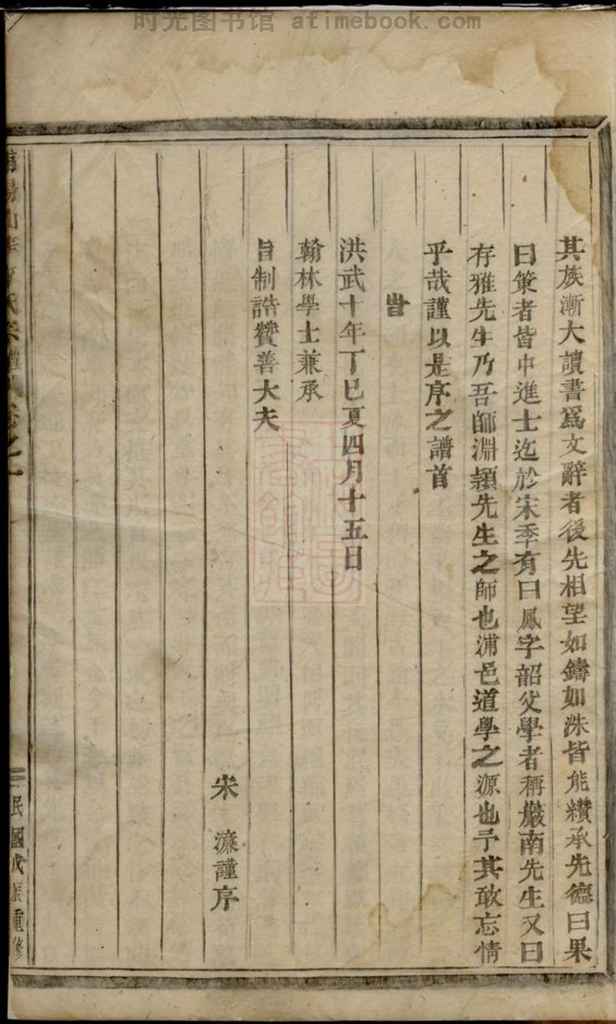 时光图书馆 atimebook.com
其族漸大讀書爲文辭者後先相望如鑄如洙皆能纘承先德曰果
曰策者皆中進士迄於宋季有曰鳳字韶父學者稱巖南先生又曰
存雅先生乃吾師淵穎先生之師也浦邑道學之源也予其敢忘情
乎哉謹以是序之譜首
旹
洪武十年丁巳夏四月十五日
翰林學士兼承
旨制誥贊善大夫
宋濂謹序
民國戊辰重修